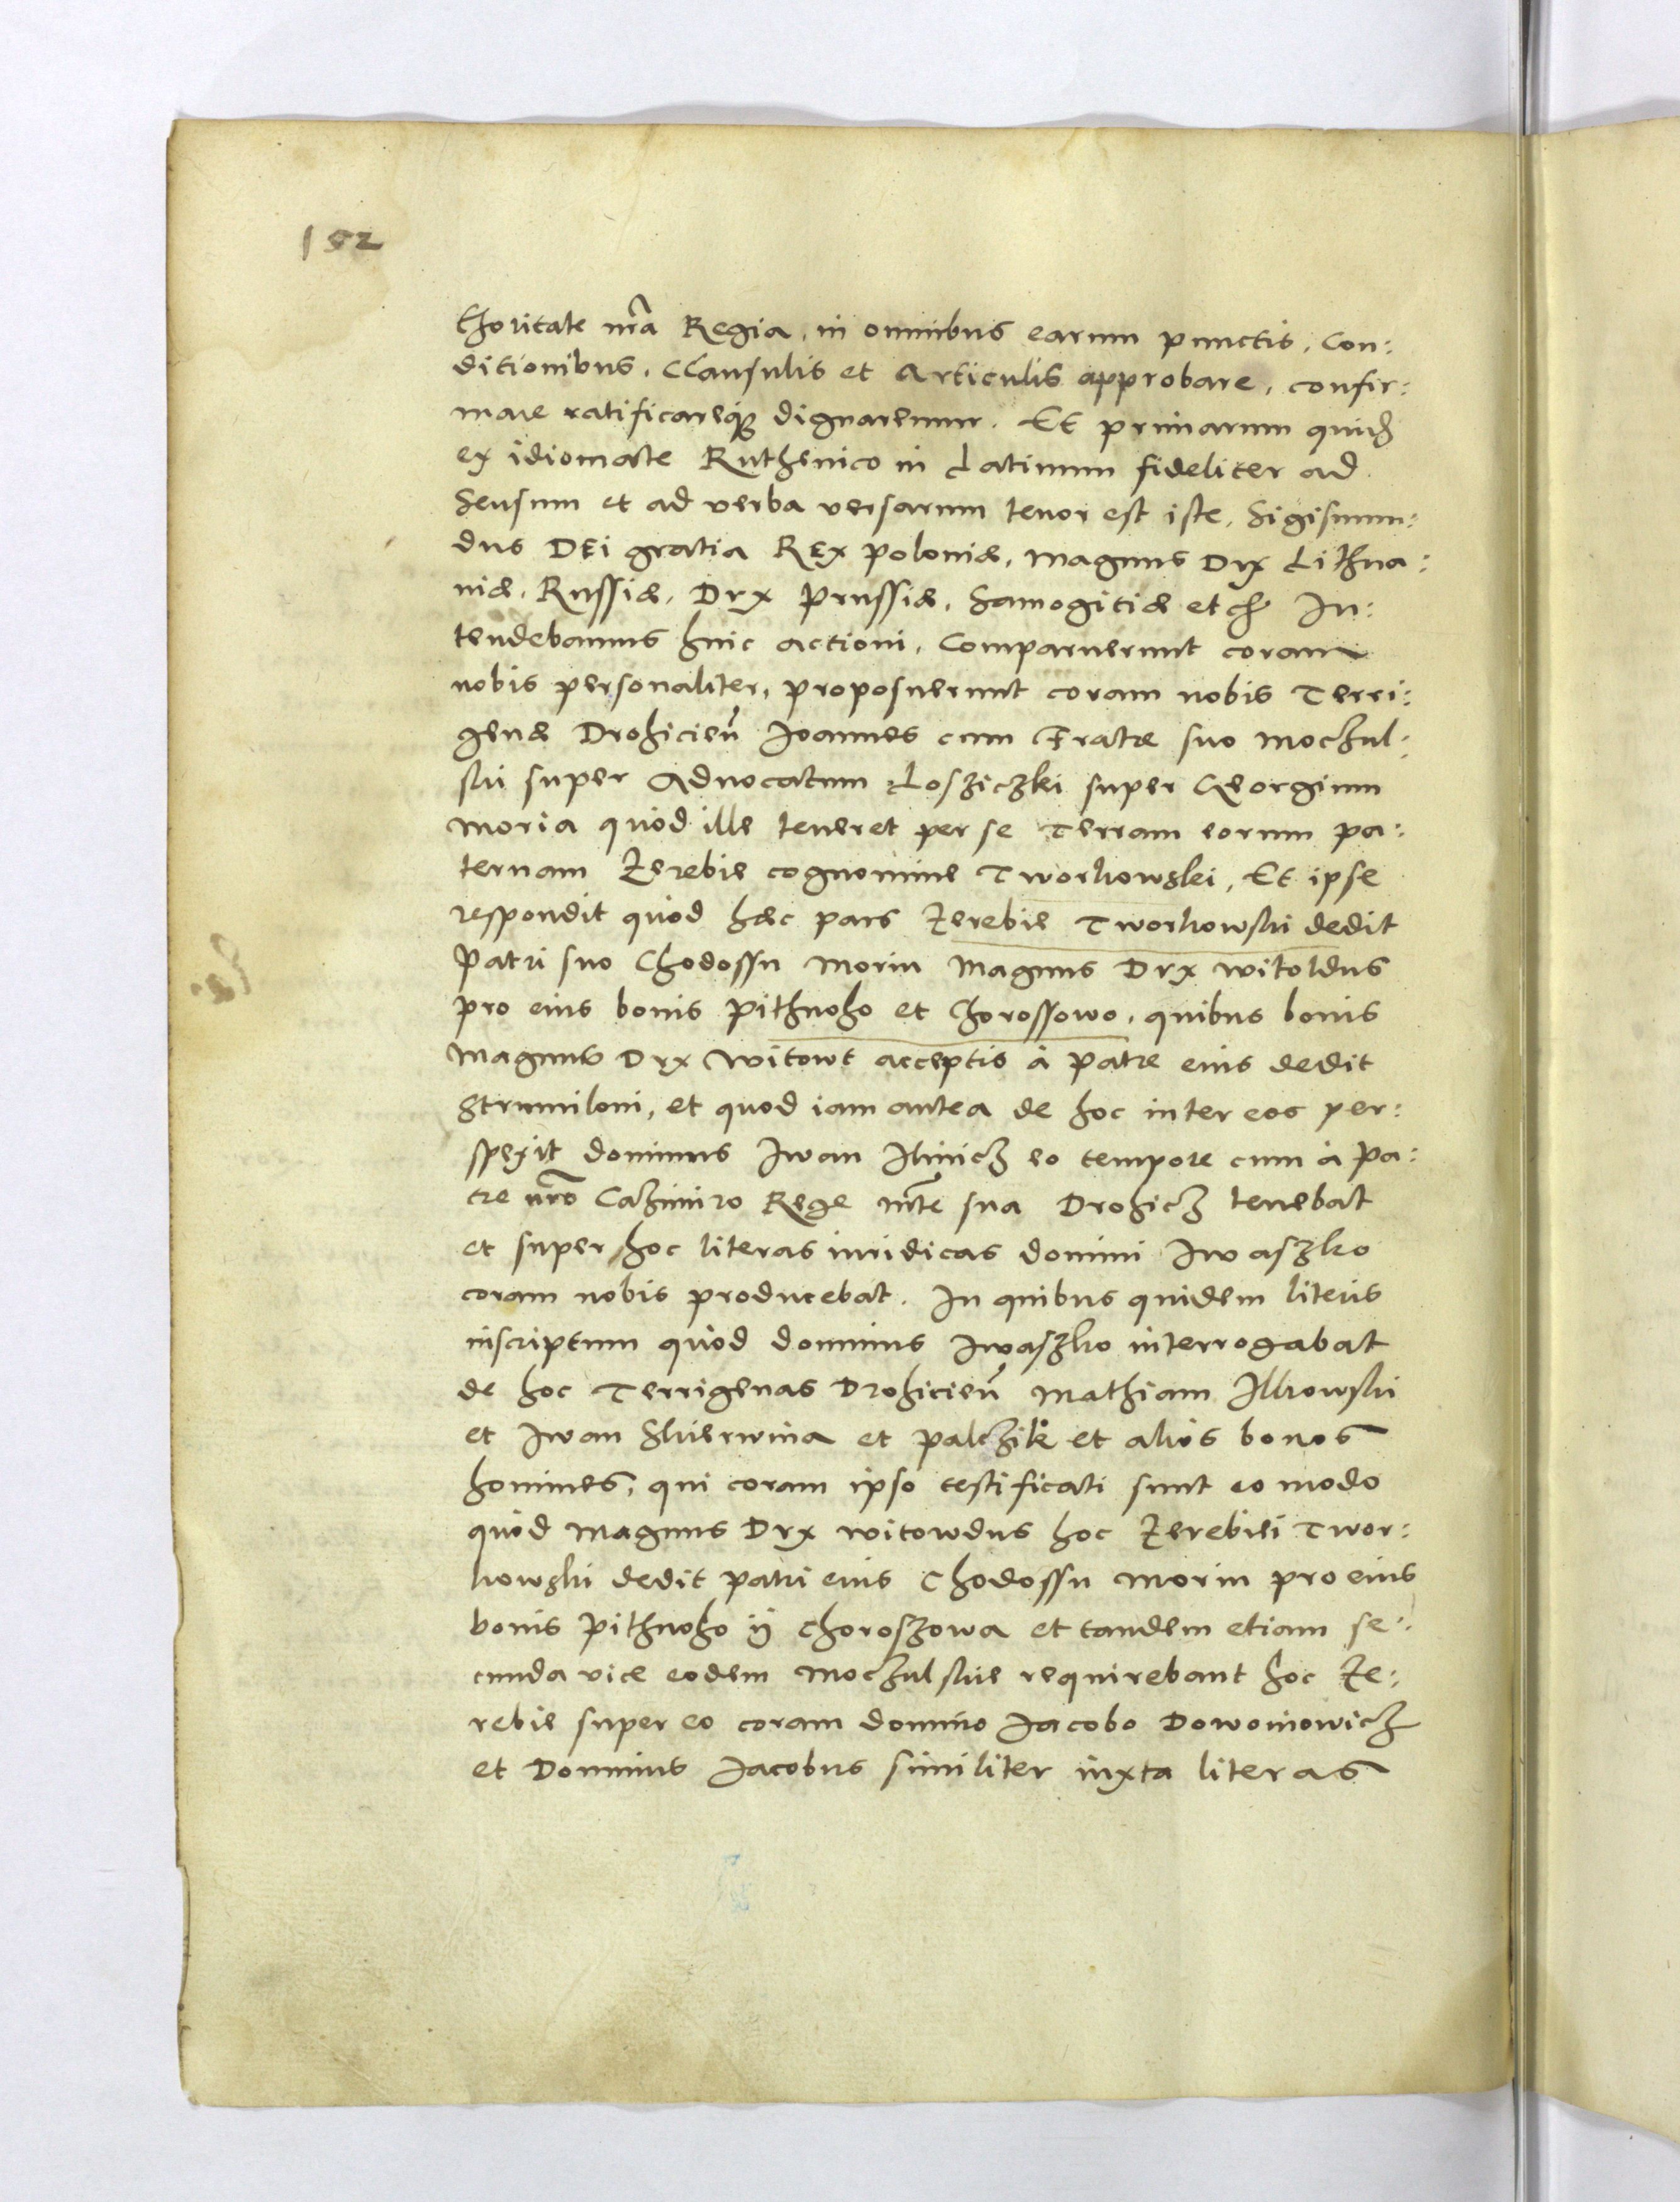 152
thoritate nrã Regia, in omnibus earum punctis, Con:
ditionibus, Clausulis et Articulis approbare, confir:
mare ratificareq; dignaremur. Et primarum quid
ex idiomate Ruthenico in Latinum fideliter ad
Sensum et ad verba versarum tenor est iste, Sigismun:
dus DEi gratia REx poloniæ, magnus Dux Lithua:
niæ, Russiæ, Dux Prussiæ, Samogitiæ etcz In:
tendebamus huic actioni, Comparuerunt coram
nobis personaliter, proposuerunt coram nobis Terri:
genæ Drohicień Joannes cum Fratre suo moczul:
ski super Aduocatum Losziczki super Georgium
moria quòd ille teneret per se Terram eorum pa:
ternam Zerebie cognomine Tworkowski, Et ipse
respondit quòd hæc pars Zerebie Tworkowski dedit
Patri suo Chodossu moriu Magnus Dux witoldus
pro eius bonis Pithnoho et Chorossowo, quibus bonis
magnus Dux witowt acceptis à patre eius dedit
Strumiloni, et quod iam antea de hoc inter eos per:
spexit dominus Iwan Ilinicz eo tempore cum à pa:
tre nrõ Cazimiro Rege mte sua Drohicz tenebat
et super hoc literas iuridicas domini Iwaszko
coram nobis producebat. In quibus quidem literis
inscriptum quòd dominus Iwaszko interrogabat
de hoc Terrigenas Drohicień Mathiam Ilkowski
et Iwan Skierwina et palczik et alios bonos
homines, qui coram ipso testificati sunt eo modo
quòd magnus Dux witowdus hoc Zerebiei Twor:
kowski dedit patri eius Chodossu moriu pro eius
bonis Pithnoho ij Choroszowa et tandem etiam se:
cunda vice eodem moczulskie requirebant hoc Ze:
rebie super eo coram domino Jacobo Dowoinowicz
et Dominus Jacobus similiter iuxta literas